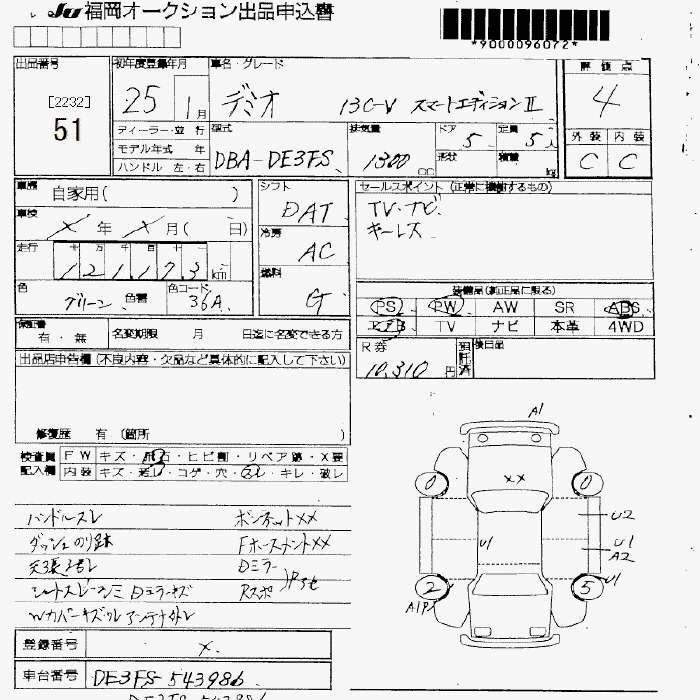 JU福岡オークション出品申込書
*9000096072*
出品番号
[2232]
51
初年度登録年月
25 1月
車名・グレード
デミオ 13C-V スマートエディションⅡ
評価点
4
外装 内装
C C
ディーラー・並行
モデル年式 年
ハンドル 左・右
型式
DBA-DE3FS
排気量
1300 cc
ドア
5
形状
定員
5人
積量
kg
車歴
自家用( )
車検
X年 X月( 日)
走行
十 万 千 百 十
121,173 km
色
グリーン 色替
色コード
36A
シフト
DAT
冷房
AC
燃料
G
セールスポイント (正常に積動するもの)
TV・ナビ
キーレス
装備品(純正品に限る)
PS PW AW SR ABS
エアB TV ナビ 本革 4WD
保証書
有・無
名変期限 月 日迄に名変できる方
R券
10,310円
後日品
出品店申告欄(不良内容・欠品など具体的に記入して下さい)
修復歴 有 (箇所 )
検査員 FW キズ・飛石・ヒビ割・リペア跡・X要
記入欄 内装 キズ・汚レ・コゲ・穴・スレ・キレ・破レ
ハンドルスレ ボンネットXX
ダッシュのり跡 FホースメントXX
天張ヨゴレ Dミラー
Dミラーキズ Rスポ
Wカバーキズワレ アンテナトレ
A1
0 0
XX
U2
U1
U1
A2
2 5
U1
A1P1
登録番号 X
車台番号 DE3FS-543986
DE3FS 543986